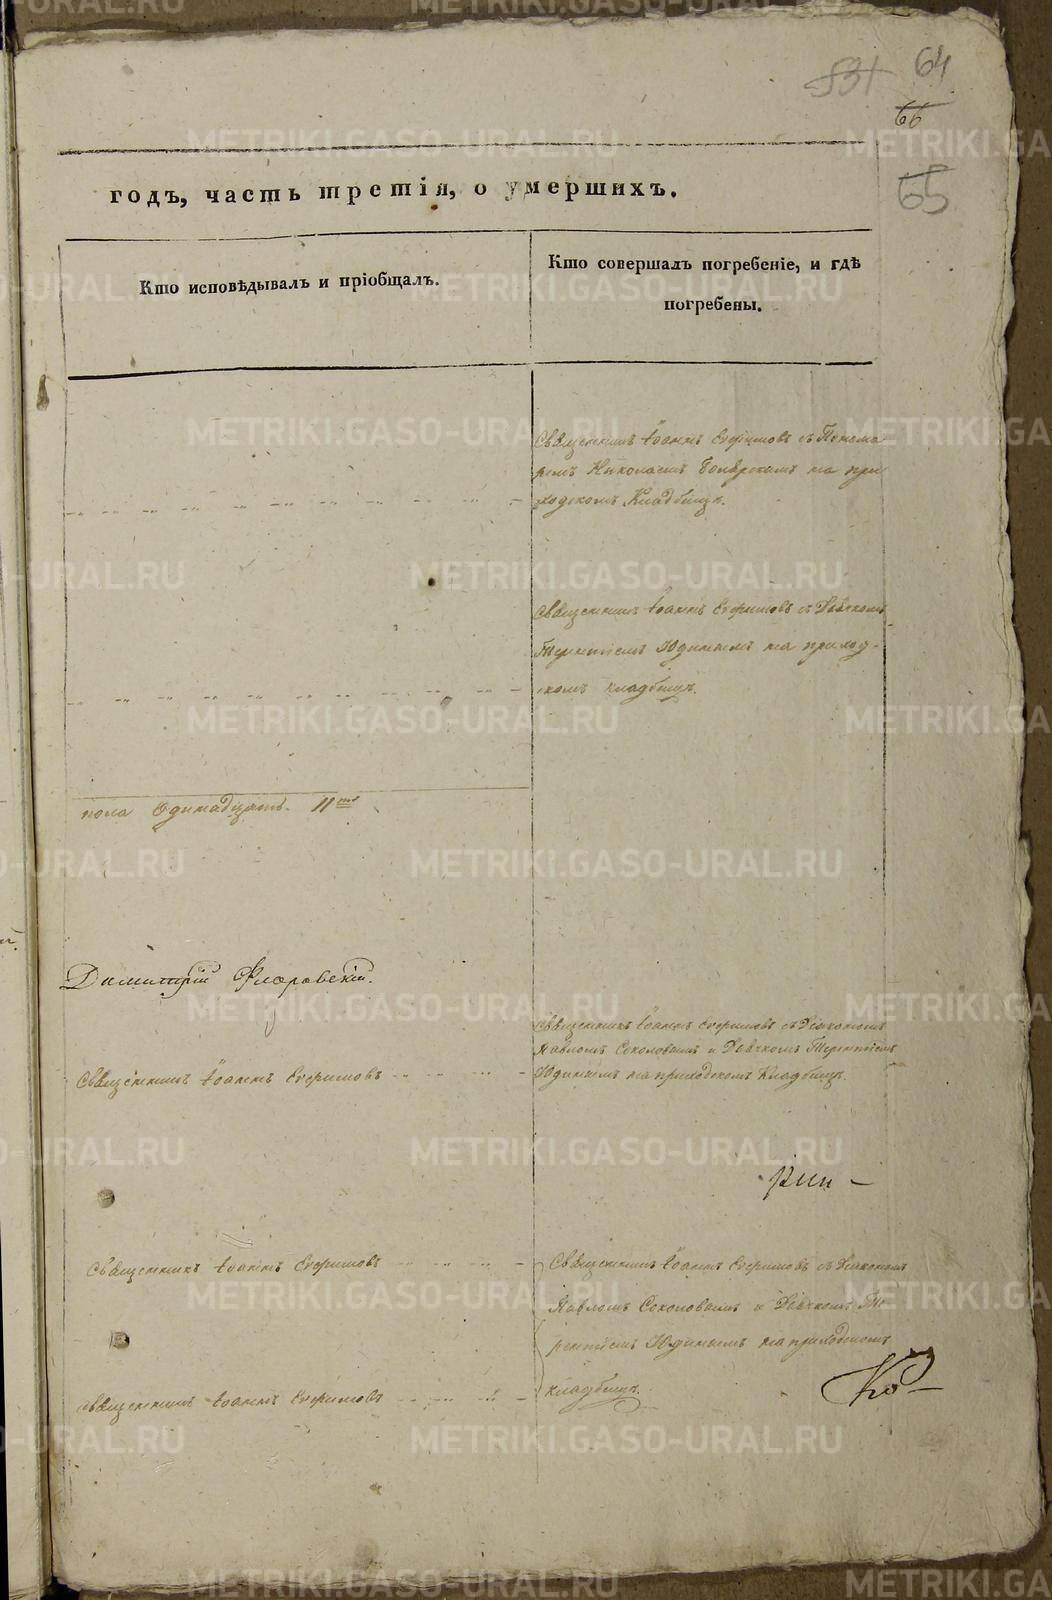 64
831
66
65
годъ, часть третія, о умершихъ.
Кто исповѣдывалъ и пріобщалъ.
Кто совершалъ погребеніе, и гдѣ
погребены.
Священникъ Іоаннъ Ефимовъ съ Понома
ремъ Николаемъ на при
ходскомъ Кладбищѣ.
Священникъ Іоаннъ Ефимовъ съ Дьячкомъ
Терентіемъ Юдинымъ на приход-
скомъ кладбищѣ.
пола Одинадцать. 11
Димитрій Флоровскій.
Священникъ Іоаннъ Ефимовъ съ Діакономъ
Павломъ Соколовымъ и Дьячкомъ Терентіемъ
Юдинымъ на приходскомъ Кладбищѣ.
Священникъ Іоаннъ Ефимовъ
Священникъ Іоаннъ Ефимовъ
Священникъ Іоаннъ Ефимовъ съ Діакономъ
Павломъ Соколовымъ и Дьячкомъ Те
рентіемъ Юдинымъ на приходскомъ
кладбищѣ.
Священникъ Іоаннъ Ефимовъ
METRIKI.GASO-URAL.RU